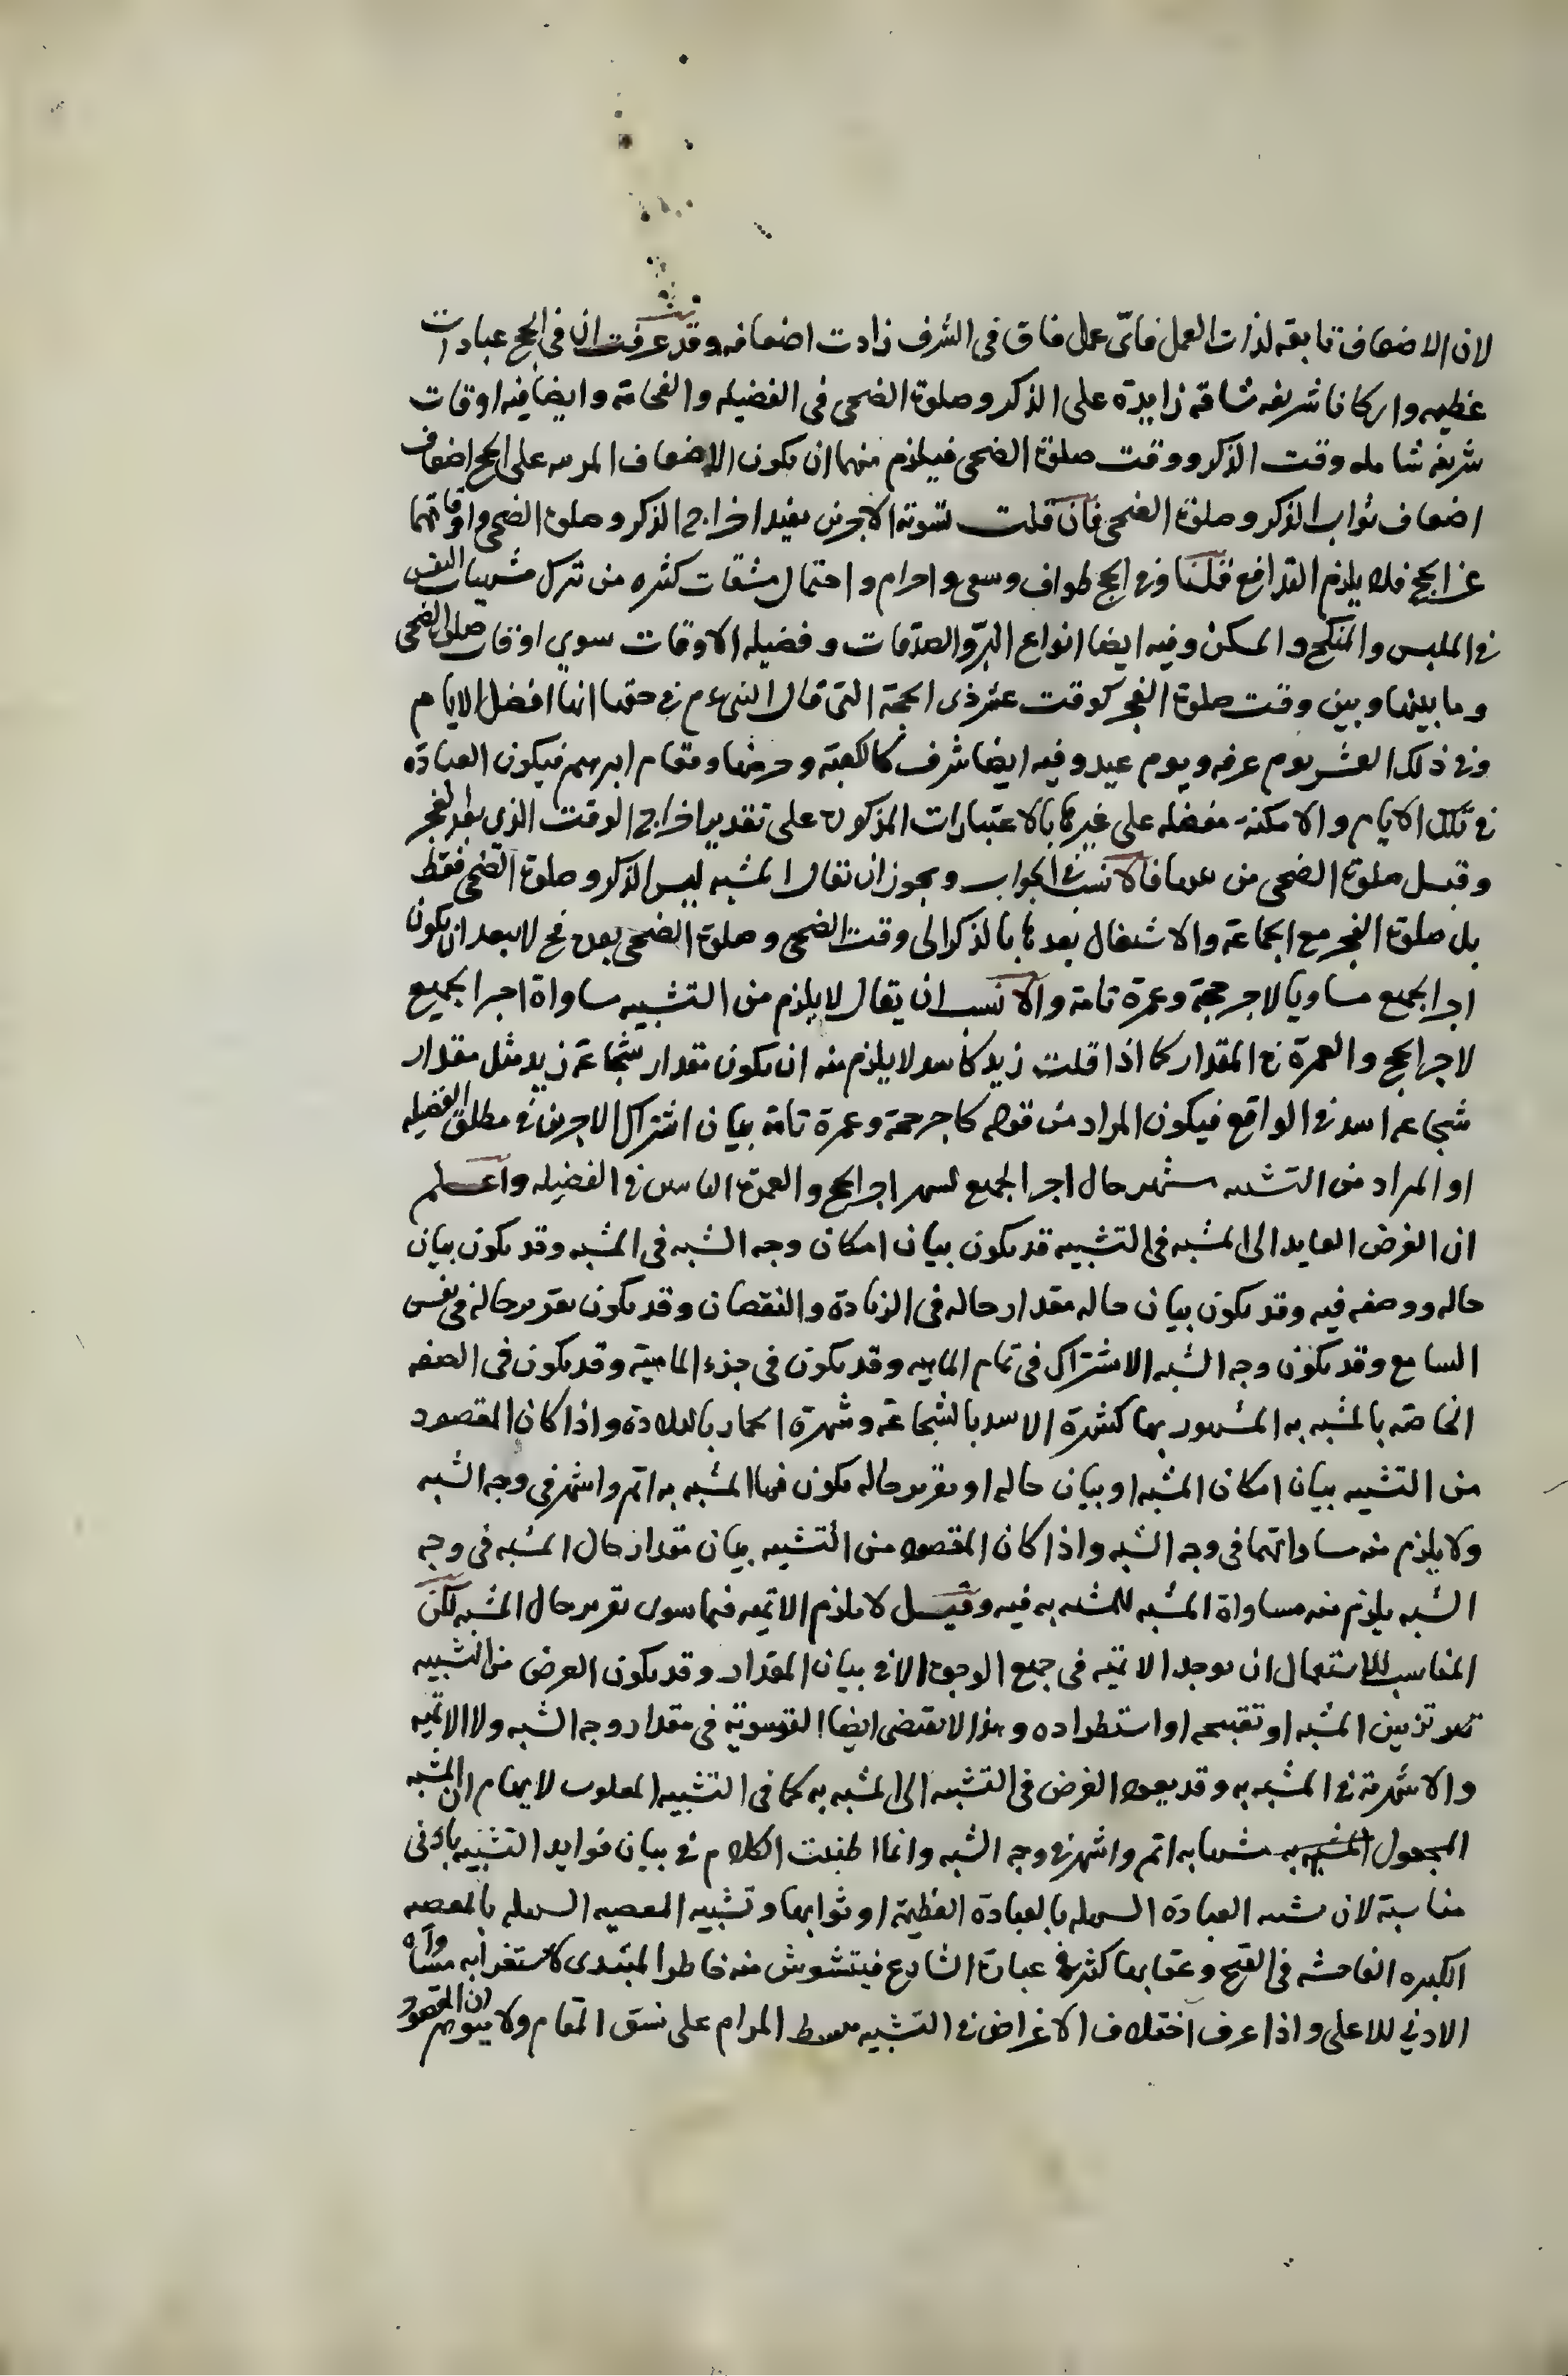 لان الاضعاف تابعه لذات العمل فاىّ عمل فاق فى الشرف زادت اضعافه وقد عرفت ان فى الحج عبادات
عظيمه واركانا شريفه شاقه زايدة على الذكر وصلوة الضحى فى الفضيله والفخامة وايضا فيه اوقات
شريفه شامله وقت الذكر ووقت صلوة الضحى فيلزم منهما ان يكون الاضعاف المرسه على الحج اضعاف
اضعاف ثواب الذكر وصلوة الضحى فان قلت تسوية الاجرين يفيد اخراج الذكر وصلوة الضحى واوقاتهما
عن الحج فلا يلزم التدافع قلنا وفى الحج طواف وسعى واحرام واحتمال مشقات كثيره من ترك مشتهيات النفس
فى الملبس والمنكح والمسكن وفيه ايضا انواع البرّ والصدقات وفضيله الاوقات سوى اوقات صلوة الضحى
وما بينها وبين وقت صلوة الفجر كوقت عشر ذى الحجة التى قال النبى ءم فى حقها انها افضل الايام
وفى ذلك العشر يوم عرفه ويوم عيد وفيه ايضا شرف كالكعبة وحرمها ومقام ابرهيم فيكون العبادة
فى تلك الايام والامكنة مفضله على غيرها بالاعتبارات المذكورة على تقدير اخراج الوقت الذى بعد الفجر
وقبل صلوة الضحى من فالانسب فى الجواب ويجوز ان يقال المشبه ليس الذكر وصلوة الضحى فقط
بل صلوة الفجر مع الجماعة والاشتغال بعدها بالذكر الى وقت الضحى وصلوة الضحى بعده فح لا يبعد ان يكون
اجر الجميع مساويا لاجر حجة وعمرة تامة والانسب ان يقال لا يلزم من التشبيه مساواة اجر الجميع
لاجر الحج والعمرة فى المقدار كما اذا قلت زيد كاسد لا يلزم منه ان يكون مقدار شجاعة زيد مثل مقدار
شجاعه اسد فى الواقع فيكون المراد من قوله كاجر حجة وعمرة تامة بيان اشتراك الاجرين فى مطلق الفضيله
او المراد من التشبيه حال اجر الجميع اجر الحج والعمرة فى الفضيله واعلم
ان الغرض العايد الى المشبه فى التشبيه قد يكون بيان امكان وجه الشبه فى المشبه وقد يكون بيان
حاله ووصفه فيه وقد يكون بيان حاله مقدار حاله فى الزيادة والنقصان وقد يكون تقرير حاله فى نفس
السامع وقد يكون وجه الشبه الاشتراك فى تمام الماهيه وقد يكون فى جزء الماهية وقد يكون فى الصفه
الخاصه بالمشبه به المشهور بها كشهرة الاسد بالشجاعة وشهرة الحمار بالبلادة واذا كان المقصود
من التشبيه بيان امكان المشبه او بيان حاله او تقرير حاله يكون فيها المشبه به اتم واشهر فى وجه الشبه
ولا يلزم منه مساواتهما فى وجه الشبه واذا كان المقصود من التشبيه بيان مقدار حال المشبه فى وجه
الشبه يلزم منه مساواة المشبه للمشبه به فيه وقيل لا يلزم الاتميه فيما سوى تقرير حال المشبه لكن
المناسب للاستعمال ان يوجد الاتميه فى جميع الوجوه الا فى بيان المقدار وقد يكون الغرض من التشبيه
تزيين المشبه او تقبيحه او استطراده وهذا لا يقتضى ايضا التسويه فى مقدار وجه الشبه ولا الاتميه
والاشهرية فى المشبه به وقد يعود الغرض فى التشبيه الى المشبه به كما فى التشبيه المقلوب لايهام ان المشبه
المجعول المشبه به اتم واشهر فى وجه الشبه وانما اطنبت الكلام فى بيان فوايد التشبيه بادنى
مناسبة لان العبادة السهله بالعبادة العظيمة او ثوابها وتشبيه المعصيه السهله بالمعصيه
الكبيره الفاحشه فى القبح وعقابها كثير فى عبارة الشارع فيتشوش منه خاطر المبتدى لاستغرابه مساواة
الادنى للاعلى واذا عرف اختلاف الاغراض فى التشبيه المرام على نسق المقام ولا يتوهم ان المقصود